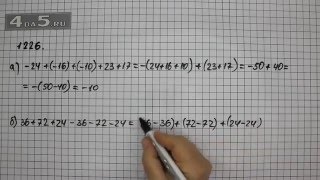 4ДЗ.RU
1226.
а) -24+(-16)+(-10)+23+17=-(24+16+10)+(23+17)=-50+40=
=-(50-40)=-10
б) 36+72+24-36-72-24= -36)+(72-72)+(24-24)